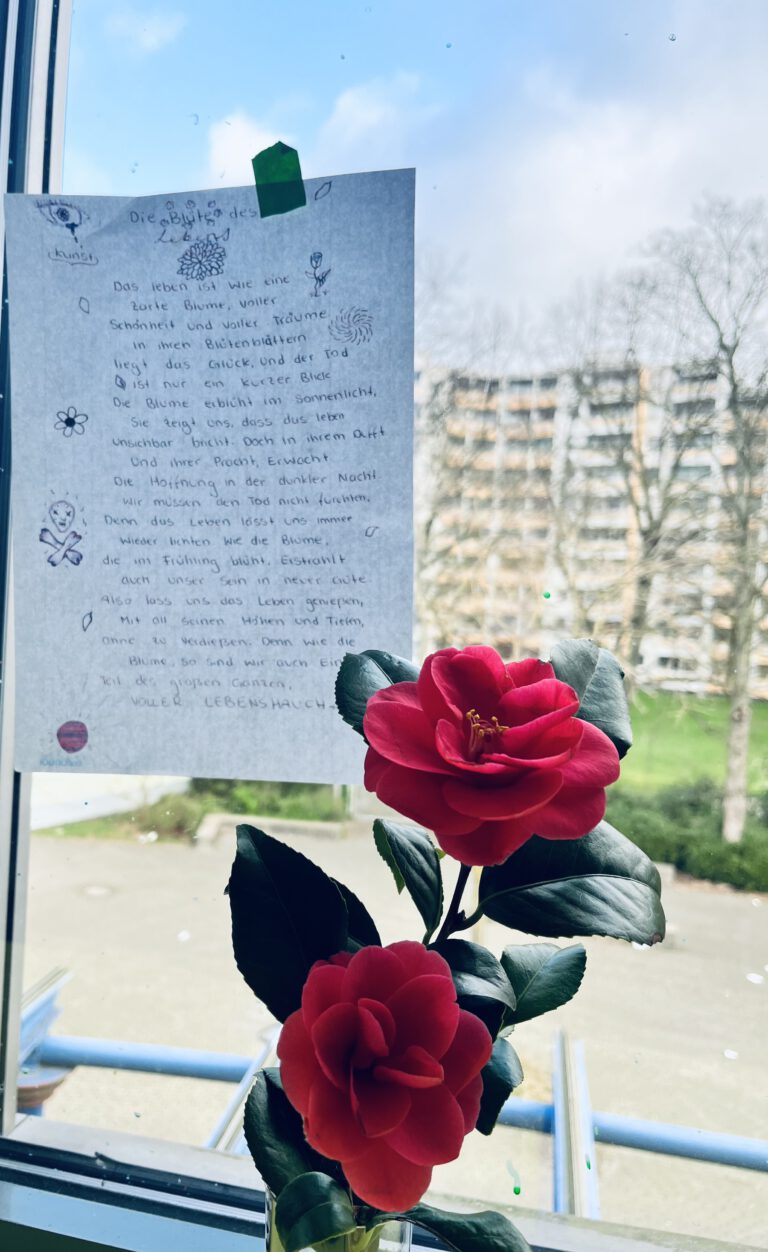 Die Blüte des
Lebens
Kunst
Das leben ist wie eine
zarte Blume, voller
Schönheit und voller Träume
in ihren Blütenblättern
liegt das Glück, und der Tod
ist nur ein kurzer Blick
Die Blume erblüht im Sonnenlicht,
Sie zeigt uns, dass das leben
unsichbar bricht. Doch in ihrem Duft
Und ihrer Pracht, Erwacht
Die Hoffnung in der dunkler Nacht
Wir müssen den Tod nicht fürchten,
Denn das Leben lässt uns immer
wieder lichten wie die Blume,
die im Frühling blüht. Erstrahlt
auch unser Sein in neuer Güte.
Also lass uns das Leben genießen,
Mit all seinen Höhen und Tiefen,
ohne zu verdießen. Denn wie die
Blume, so sind wir auch Ein
Teil des großen Ganzen,
VOLLER LEBENSHAUCH.